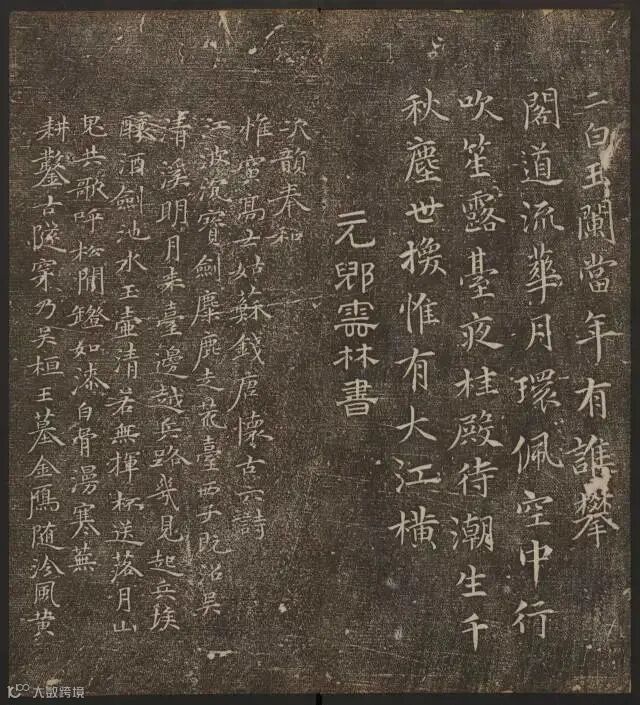 二白玉闌當年有誰攀
閣道流華月環佩空中行
吹笙露臺夜桂殿待潮生千
秋塵世換惟有大江橫
元林書
次韻奉和
惟寅高士姑蘇錢唐懷古六詩
江波寶劍麋鹿走荒臺西子既沼吳
清溪明月來臺邊越兵路幾見起兵埃
釀酒劍池水玉壺清若無揮杯送落月山
鬼共歌呼松關如漆白骨漫寒蕪
耕鑿古隧穿乃吳桓王墓金鴈隨泠風黄
大数跨境